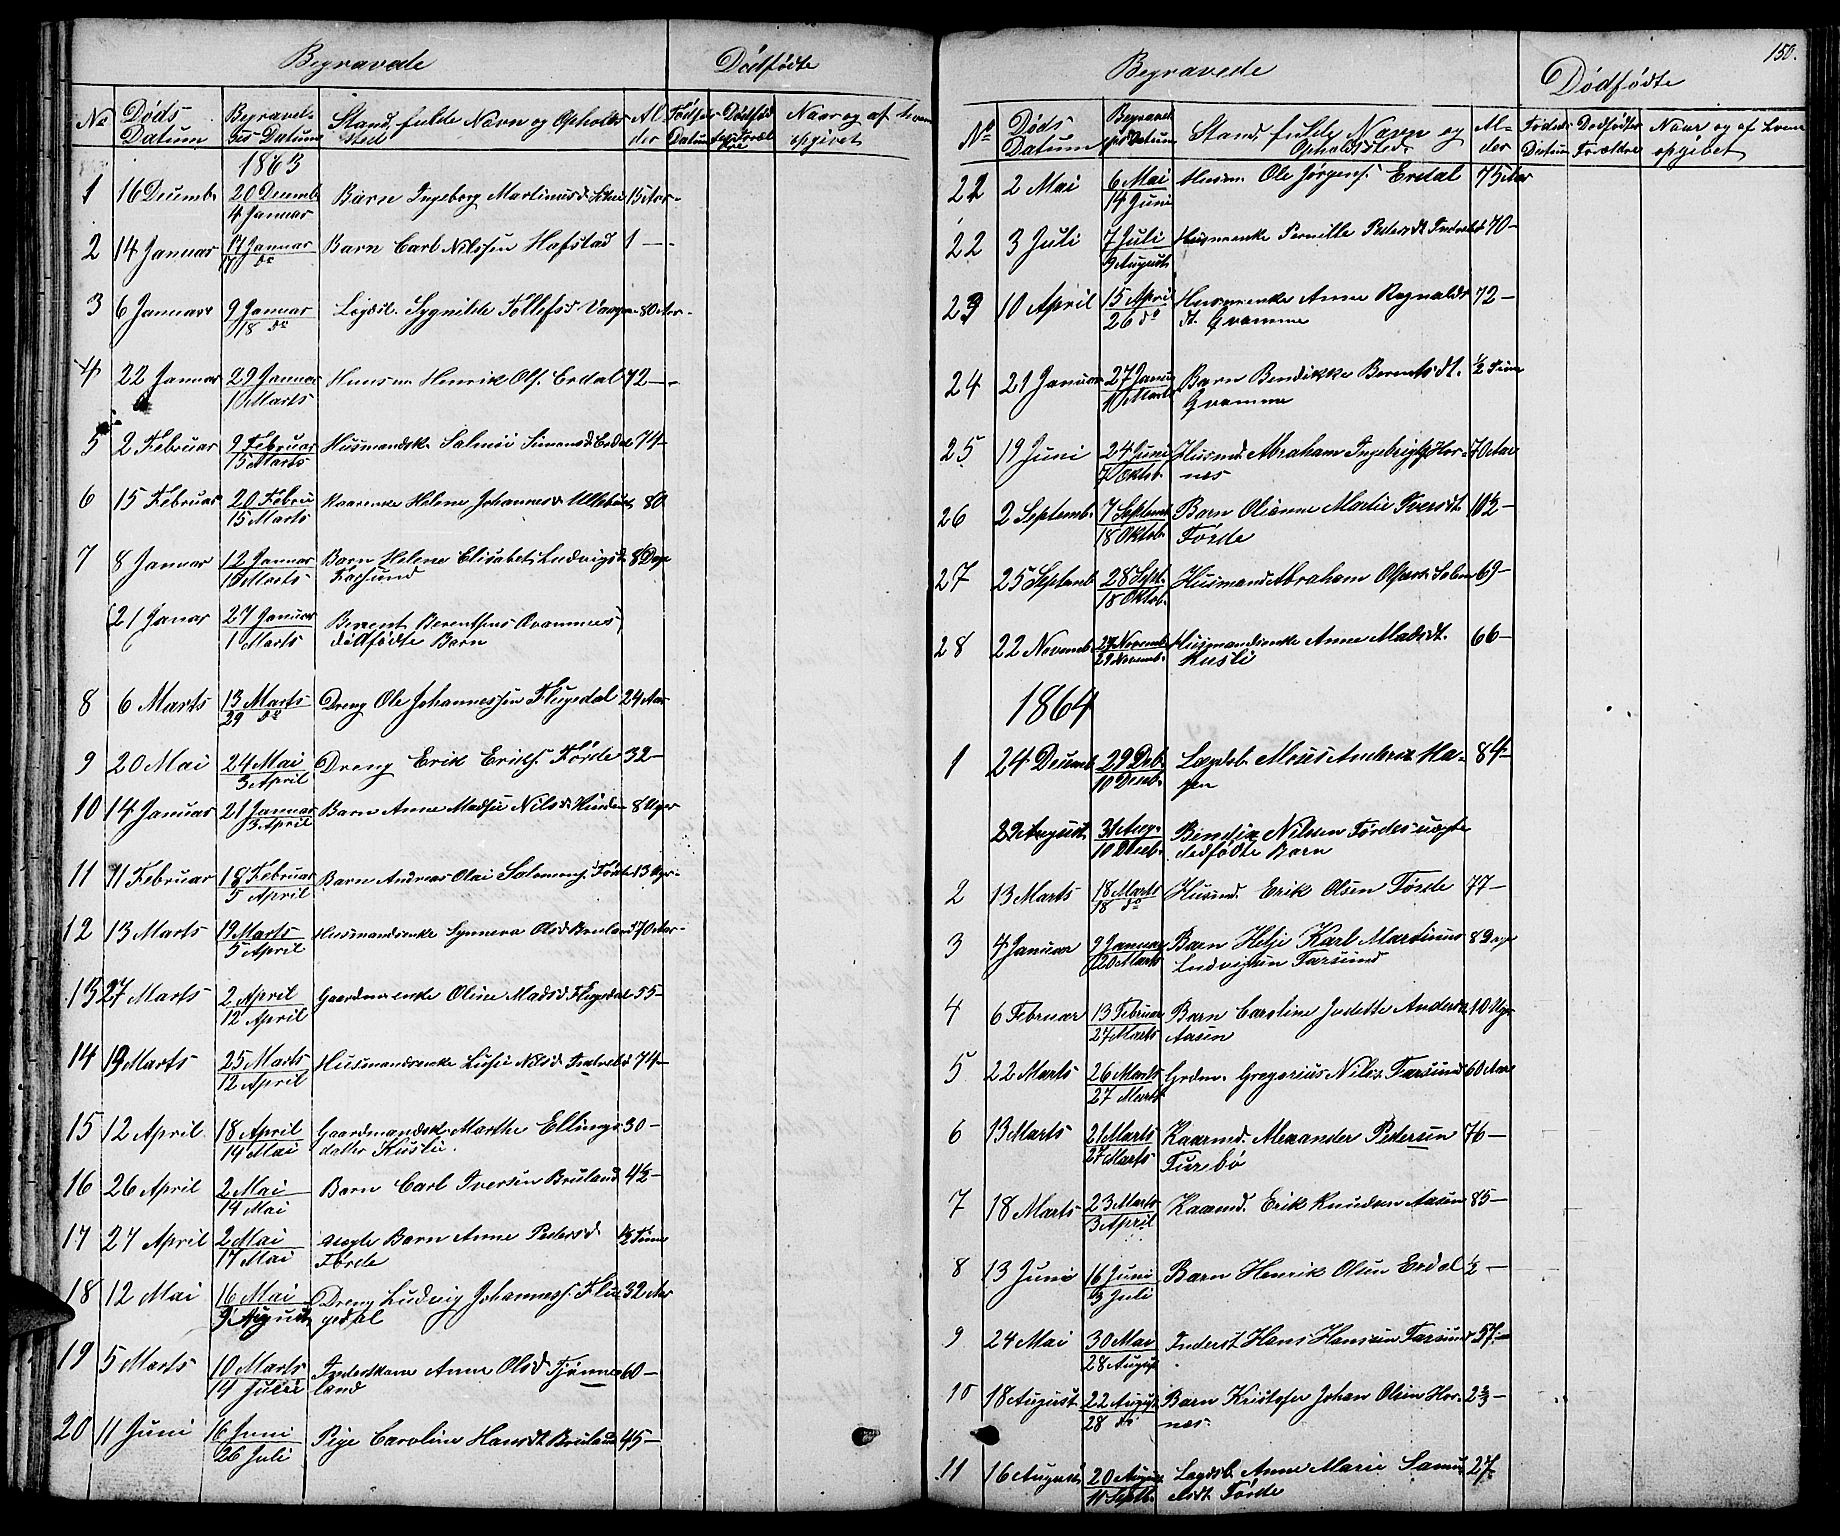 Begravede
Dødfødte
No
Døds Datum
Begravelses-Datum
Stand, fulde Navn og Opholdssted
Alder
Naar og af hvem opgivet
1863
1 16 Decembr 20 Decemb 4 Januar Barn Ingeborg Martinusd. 15 Aar-
2 14 Januar 17 Januar 17 do Barn Carl Nilssen Hafstad 1 —
3 6 Januar 9 Januar 18 do Lægdsl. Sygnilde Tollefsd. 80 Aar-
4 22 Januar 29 Januar 1 Marts Huusm. Henrik Ols. Erdal 72—
5 2 Februar 9 Februar 15 Marts Husmandsk. Salmoi Simonsd. Erdal 74—
6 15 Februar 20 Febru 15 Marts Kaarenke Helene Johannesd. 80
7 8 Januar 12 Januar 1 Marts Barn Helene Elisabet Ludvigsd.
Farsund 8 Dage
21 Januar 27 Januar 1 Marts Berent Berentsens Qvammes
dødfødte Barn
8 6 Marts 13 Marts 29 do Dreng Ole Johannessen Flugedal 24 Aar
9 20 Mai 24 Mai 3 April Dreng Erik Eriks. Førde 32—
10 14 Januar 21 Januar 3 April Barn Anne Madsie Nilsd. 8 Uger
11 11 Februar 18 Februar 5 April Barn Andreas Olai Salomons. Førde 13 Uger-
12 13 Marts 19 Marts 5 April Husmandsenke Synneva Olsd. Bruland 70 Aar-
13 27 Marts 2 April 12 April Gaardm.enke Oline Madsd. Flugedal 55—
14 19 Marts 25 Marts 12 April Husmandsenke Lucie Nilsd. Indrebø 74—
15 12 April 18 April 14 Mai Gaardmandsk. Marthe Ellings-
datter Kusli. 30—
16 26 April 2 Mai 14 Mai Barn Carl Iversen Bruland 4½—
17 27 April 2 Mai 17 Mai uægte Barn Anne Pedersd.
Førde ½ Time
18 12 Mai 16 Mai 9 August Dreng Ludvig Johanness. Flu-
gedal 32 Aar
19 5 Marts 10 Marts 14 Juli Inderstkone Anne Olsd. Tjønne-
land 60—
20 11 Juni 16 Juni 26 Juli Pige Caroline Hansdt. Bruland 45—
150.
Begravede
Dødfødte
No
Døds Datum
Begravelses Datum
Stand, fulde Navn og Opholdssted
Alder
Føds. Datum
Dødfødtes Forældre
Naar og af hvem opgivet
21 2 Mai 6 Mai 14 Juni Husm. Ole Jørgens. Erdal 75 Aar
22 3 Juli 7 Juli 9 August Husmenke Pernille Pedersdt. Indrebø 70—
23 10 April 15 April 26 do Husmenke Anne Ragnalds-
dt. Qvamme 72—
24 21 Januar 27 Janu 1 Marts Barn Bendikke Berentsdt.
Qvamme ½ Time
25 19 Juni 24 Juni 7 Oktob. Husmd. Abraham Ingebrigts. Hor-
nes 70 Aar
26 2 Septemb. 7 Septemb 18 Oktob. Barn Olianne Marie Iversdt.
Førde 10½—
27 25 Septemb 28 Sept. 18 Oktob. Husmand Abraham 69—
28 22 Novemb. 27 Novemb. 29 Novemb. Husmandsenke Anne Madsdt.
Kusli 66—
1864
1 24 Decemb 29 Deb. 10 Decemb. Lægdsl. Mons Anders. Ha-
gen 84—
29 August 31 Aug. 10 Decb. Bendix Nilsens Førdes uægte
dødfødte Barn
2 13 Marts 18 Marts 18 do Husmd. Erik Olsen Førde 77—
3 4 Januar 9 Januar 20 Marts Barn Helje Karl Martinus
Ludvigsen Farsund 8 Dage
4 6 Februar 13 Februar 27 Marts Barn Caroline Judette Andersd.
Aasen 10 Uger
5 22 Marts 26 Marts 27 Marts Grdm. Gregorius Nils. Farsund 60 Aar
6 13 Marts 21 Marts 27 Marts Kaarmd. Alexander Pedersen
Furebø 76—
7 18 Marts 23 Marts 3 April Kaarmd. Erik Knudsen Aasen 85—
8 13 Juni 16 Juni 3 Juli Barn Henrik Olsen Erdal ½—
9 24 Mai 30 Mai 28 August Inderst Hans Hansen Farsund 57—
10 18 August 22 August 28 do Barn Kristofer Johan Olsen Hor-
nes 2½—
11 16 August 20 August 11 Septb. Lægdsl. Anne Marie Samu-
elsdt. Førde 27—